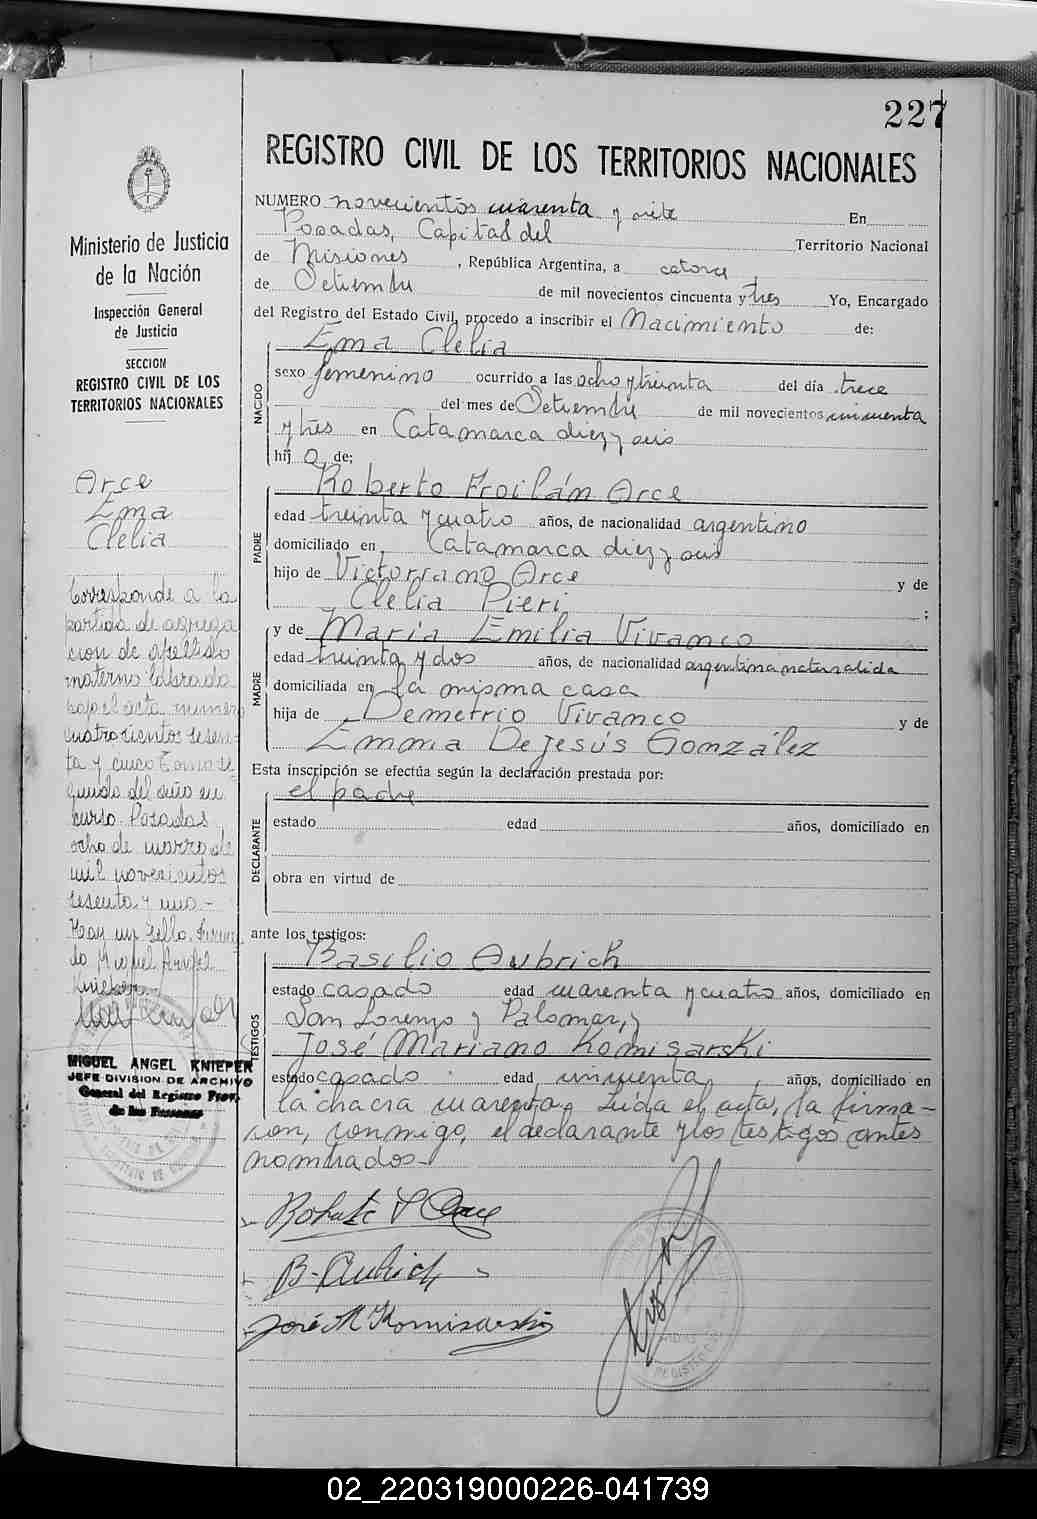 227
REGISTRO CIVIL DE LOS TERRITORIOS NACIONALES
NUMERO novecientos cuarenta y siete En
Posadas, Capital del Territorio Nacional
de Misiones, República Argentina, a catorce
de Setiembre de mil novecientos cincuenta y tres Yo, Encargado
del Registro del Estado Civil, procedo a inscribir el Nacimiento de:
Ema Clelia
NACIDO
sexo femenino ocurrido a las ocho y treinta del día trece
del mes de Setiembre de mil novecientos cincuenta
y tres en Catamarca diez y seis
hij a de:
Roberto Froilán Arce
PADRE
edad treinta y cuatro años, de nacionalidad argentino
domiciliado en Catamarca diez y seis
hijo de Victoriano Arce y de
Clelia Pieri ;
y de María Emilia Vivanco
MADRE
edad treinta y dos años, de nacionalidad argentina naturalida
domiciliada en la misma casa
hija de Demetrio Vivanco y de
Emma De Jesús González
Esta inscripción se efectúa según la declaración prestada por:
el padre
DECLARANTE
estado edad años, domiciliado en
obra en virtud de
ante los testigos:
Basilio Aubrich
TESTIGOS
estado casado edad cuarenta y cuatro años, domiciliado en
San Lorenzo y Palomar, y
José Mariano Komisarski
estado casado edad cincuenta años, domiciliado en
la chacra cuarenta. Leída el acta, la firma-
ron, conmigo, el declarante y los testigos antes
nombrados-
Roberto F Arce
B. Aubrich
José M Komisarski
Ministerio de Justicia
de la Nación
Inspección General
de Justicia
SECCION
REGISTRO CIVIL DE LOS
TERRITORIOS NACIONALES
Arce
Ema
Clelia
Corresponde a la
partida de agrega
cion de apellido
materno labrada
bajo el acta numero
cuatrocientos sesen-
ta y cinco Tomo se-
gundo del año en
curso. Posadas
ocho de marzo de
mil novecientos
sesenta y uno-
Hay un sello. Firma
do Miguel Angel
Knieper
MIGUEL ANGEL KNIEPER
JEFE DIVISION DE ARCHIVO
General del Registro Prov.
de las Personas
02_220319000226-041739